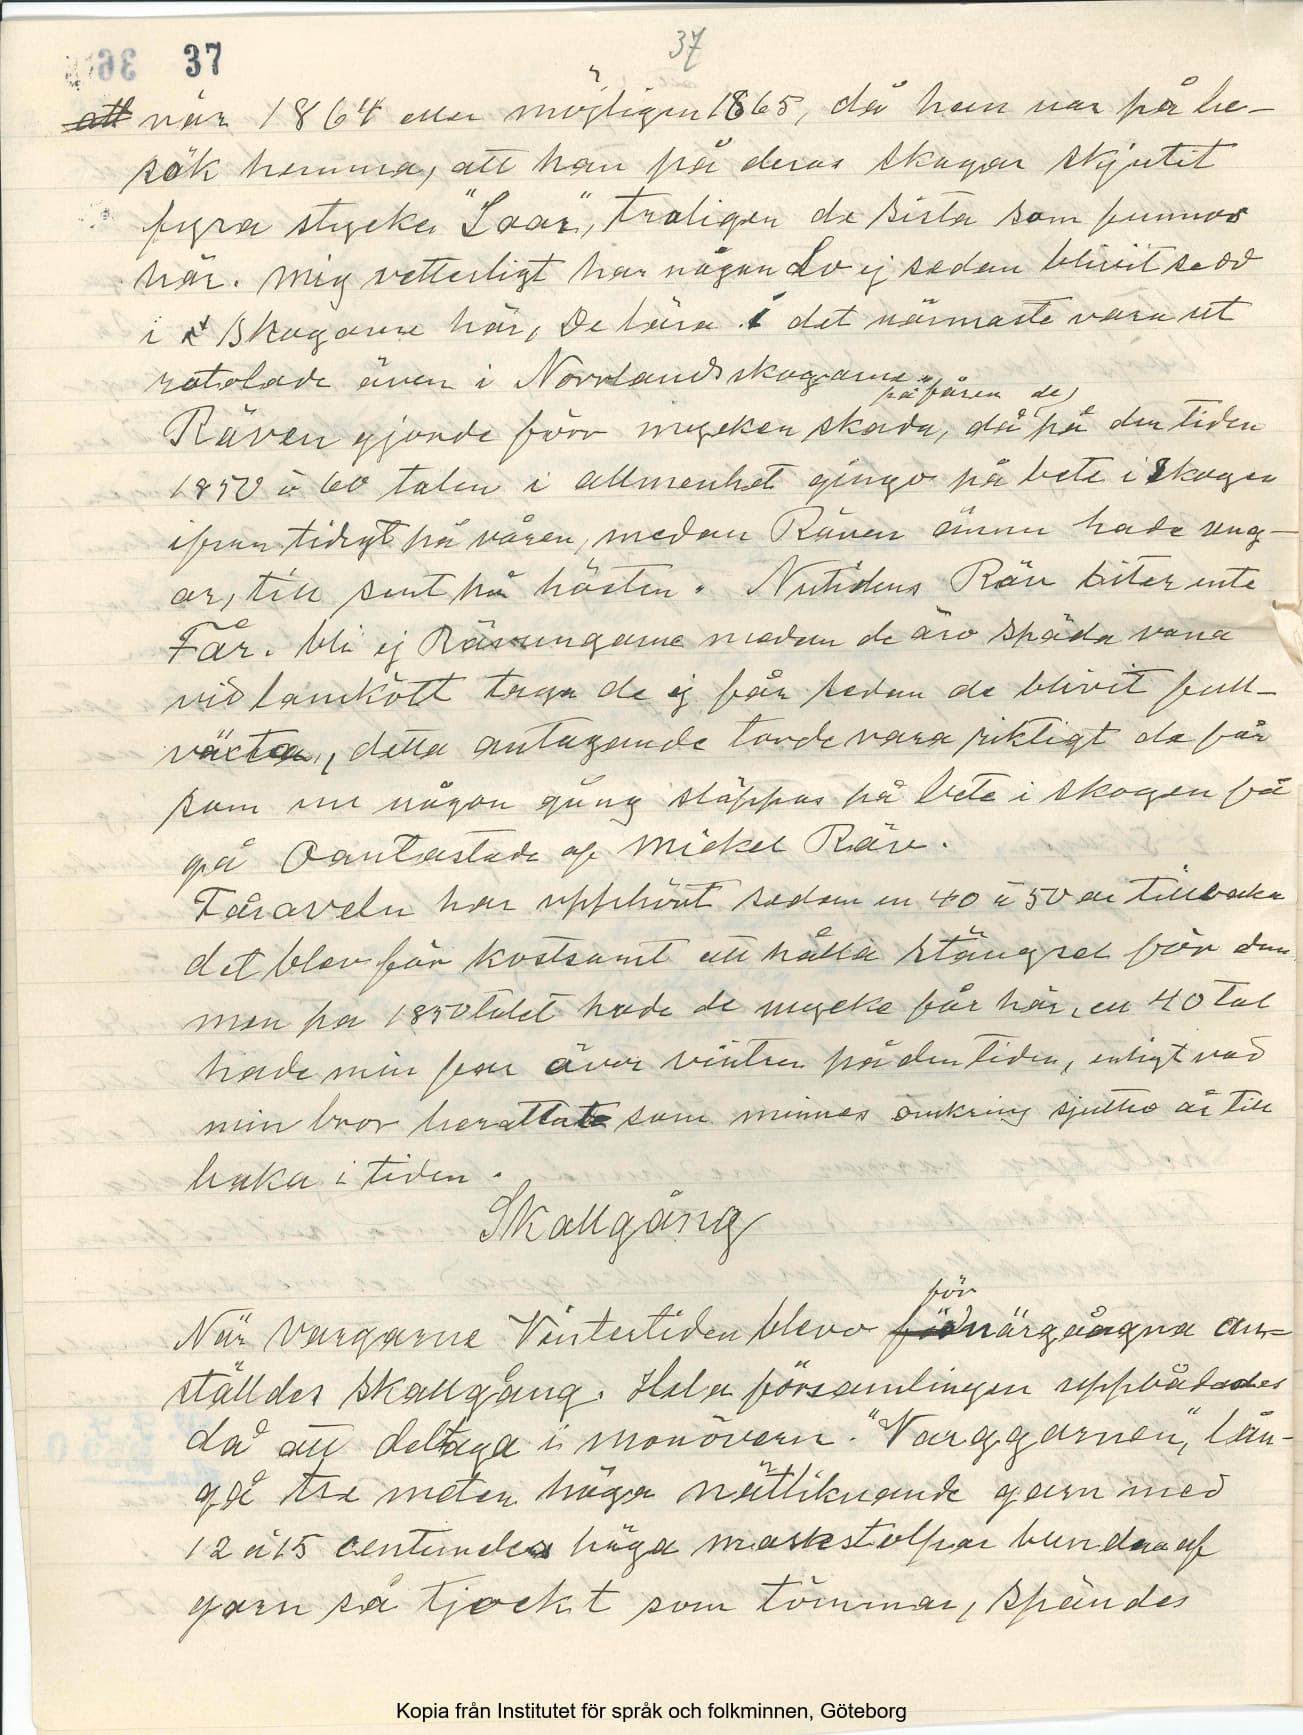 37 37
att när 1864 eller möjligen 1865, då han var på be-
sök hemma, att han på deras skogar skjutit
fyra stycke "Loar", troligen de sista som funnos
här. Mig vetterligt har någon Lo ej sedan blivit sedd
i skogarne här, De lära i det närmaste vara ut
rotolade även i Norrlandsskogarne.
på fåren de
Räven gjorde förr mycken skada, då på den tiden
1850 à 60 talen i allmenhet gingo på bete i skogen
ifrån tidigt på våren, medan Räven ännu hade ung-
ar, till sent på hösten. Nutidens Räv biter inte
Får. bli ej Rävungarne medan de äro späda vana
vid lamkött taga de ej får sedan de blivit full-
växta, detta antagande torde vara riktigt de får
som nu någon gång släppas på bete i skogen få
gå Oantastade af Mickel Räv.
Fåraveln har upphört sedan en 40 à 50 år tillbaka
det blev för kostsamt att hålla stängsel för dem
men på 1850talet hade de mycke får här, en 40 tal
hade min far över vintren på den tiden, enligt vad
min bror berättate som minnes omkring sjuttio år till
baka i tiden.
Skallgång
för
När vargarne Vintertiden blevo närgångna an-
ställdes skallgång. Hela församlingen uppbådades
då att deltaga i monövern. "Varggarnen", lån-
gå tre meter höga nätliknande garn med
12 à 15 centimeters höga maskstolpar bundna af
garn så tjockt som tömmar, spändes
Kopia från Institutet för språk och folkminnen, Göteborg